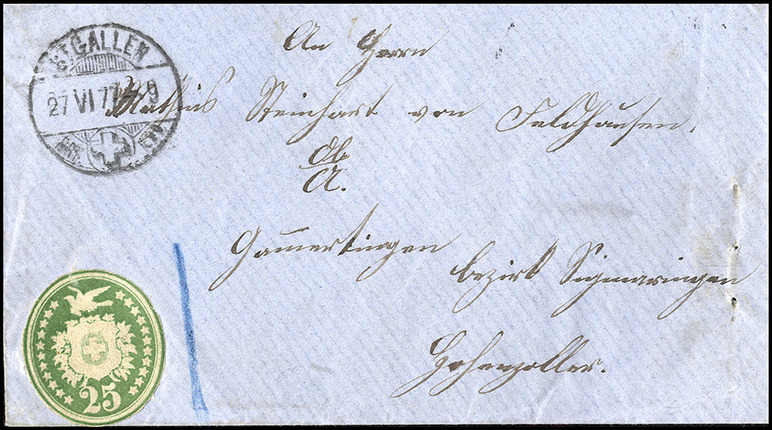 ST. GALLEN
27 VI 77 9
An Herrn
Mathias Steinhart von Feldhausen.
Gamertingen
bezirk Sigmaringen
Hohenzoller.
25